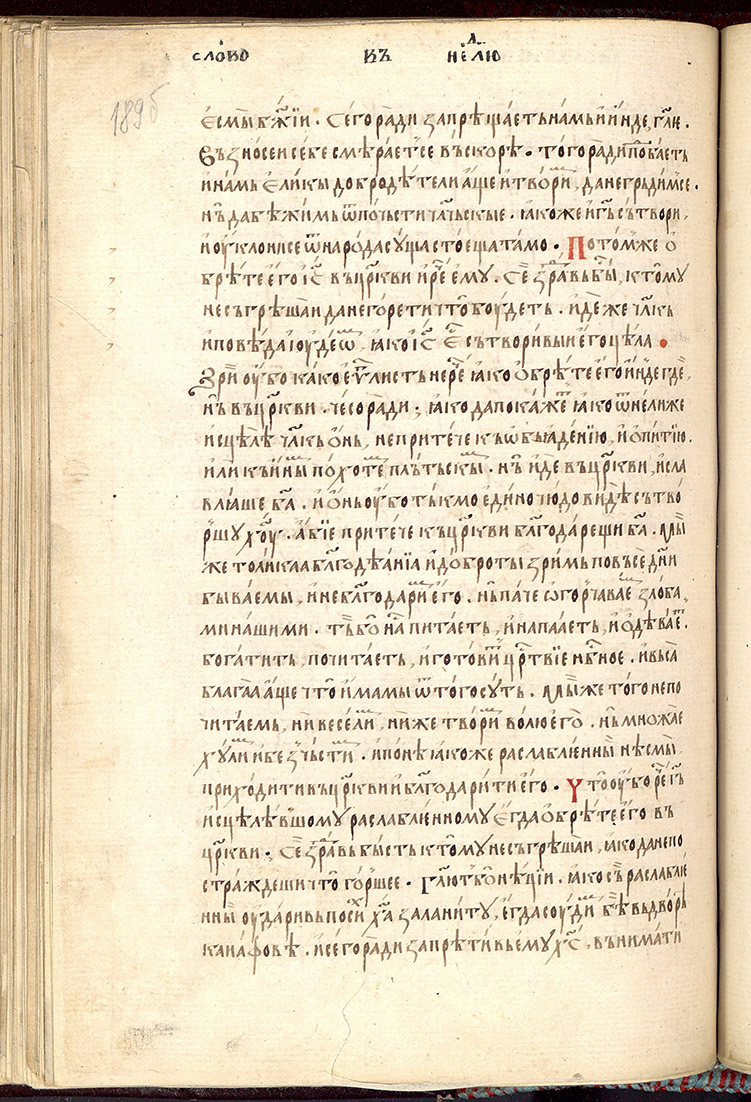 слово въ не́лю д҃
189б
есмы̀ бж҃їи · Сего̀ ра́ди запрѣща́еть на́мь и҆ и҆́нде, гл҃ѥ ·
въ̀знесе́и себѐ смѣра́ет се въско́рѣ · того̀ ра́ди побаеть
и҆ на́мь е҆ли́кы добродѣ́тели а҆́ще и҆ твори́м, да не грьди́мсе ·
нь̀ да бѣжи́мь ѿ по́чьсти чл҃чьскые · ꙗ҆́коже и҆ гь҃ сътворѝ,
и҆ оу҆клони́ се ѿ наро́да су́ща сто́ещаа та́мо · Пото́мже о҆
брѣ́те е҆го̀ і҆с҃ въ цр҃кви и҆ ре́ е҆му̀ · Се́ здра́вь бы́, кто́му
не съгрѣша́и да не го́ре ти что̀ боу́деть · и҆́деже чл҃кь
и҆ повѣ́да і҆оуде́ѡм ꙗ҆́ко і҆с҃ є҆́с сътвори́выи е҆го̀ цѣ́ла ·
Зри́ оу҆̀бо ка́ко е҆ѵ҃листь не ре́ ꙗ҆́ко о҆брѣ́те е҆го̀ и҆́нде гдѐ,
нь̀ въ цр҃кви · чесо̀ ра́ди · ꙗ҆́ко да пока́жет ꙗ҆́ко ѿне́лиже
и҆сцѣ́лѣ чл҃кь о҆́нь, не прите́че къ ѡ҆бьꙗде́нїю, и҆ о҆пи́тїю ·
и҆лѝ къ и҆ны́м по́хоте́м пльтьскы́м · нь̀ и҆́де въ цр҃квь, и҆ сла
влꙗ́ше ба҃ · и҆ о҆́нь оу҆́бо ты́кмо е҆ди́но чю́до ви́дѣ сътво́
ршу хо҃у · а҆́бїе прите́че къ цр҃кви бл҃года́рещи ба҃ · Мы́
же толи́ка бл҃годѣа́нїа и҆ до́броты̀ зри́мь по въсе́ днѝ
быва́емы, и҆ не бл҃годари́м е҆го̀ · нь па́че ѡ҆горчава́ем зло́ба
ми на́шими · тъ́ бо на́ пита́еть, и҆ напаа́еть, и҆ о҆дѣва́ет ·
бога́тить, почита́еть, и҆ гото́вит црт҃вїе нбн҃ое · и҆ въса̀
блага́а а҆́ще что̀ и҆́мамы ѿ то́го су́ть · Мы́же того̀ не по
чита́емь, ни весели́м, ни́же твори́м во́лю е҆го̀ · нь мно́жае
ху́лим и҆ бе зч҃ьсти́м · и҆ поне́ ꙗ҆́коже раславлїе́нны нѣ́смы̀
приходи́ти въ цр҃кви и҆ бл҃годари́ти е҆го̀ · Что̀ оу҆́бо ре́ гь҃
и҆сцѣлѣ́вшому раславлїе́нному е҆гда̀ о҆брѣ́те е҆го̀ въ
цр҃кви · Се́ здра́вь бы́сть кто́му не съгрѣша́и, ꙗ҆́ко да не по
стра́ждеши что̀ го́ршее · Глю҃т бо нѣ́цїи · ꙗ҆́ко съ̀ раславлїе́
нны оу҆да́ривь по́сїх ха҃ за лани́ту, е҆гда̀ суди́м бѣ̀ въ дво́рѣ
каиа́фовѣ · и҆ сего̀ ра́ди запрѣти́вь е҆му̀ хс҃, вънима́ти